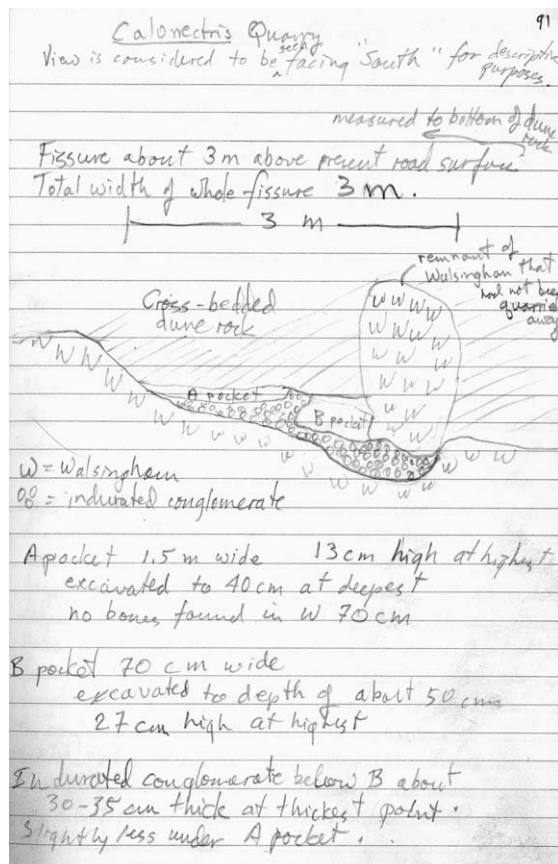 91
Calonectris Quarry
View is considered to be seen facing "South" for descriptive
purposes.
measured to bottom of dune
rock
Fissure about 3 m above present road surface
Total width of whole fissure 3 m.
3 m
remnant of
Walsingham that
had not been
quarried
away
Cross-bedded
dune rock
A pocket
B pocket
W = Walsingham
= indurated conglomerate
A pocket 1.5 m wide 13 cm high at highest
excavated to 40 cm at deepest
no bones found in W 70 cm
B pocket 70 cm wide
excavated to depth of about 50 cm
27 cm high at highest
Indurated conglomerate below B about
30-35 cm thick at thickest point.
Slightly less under A pocket.